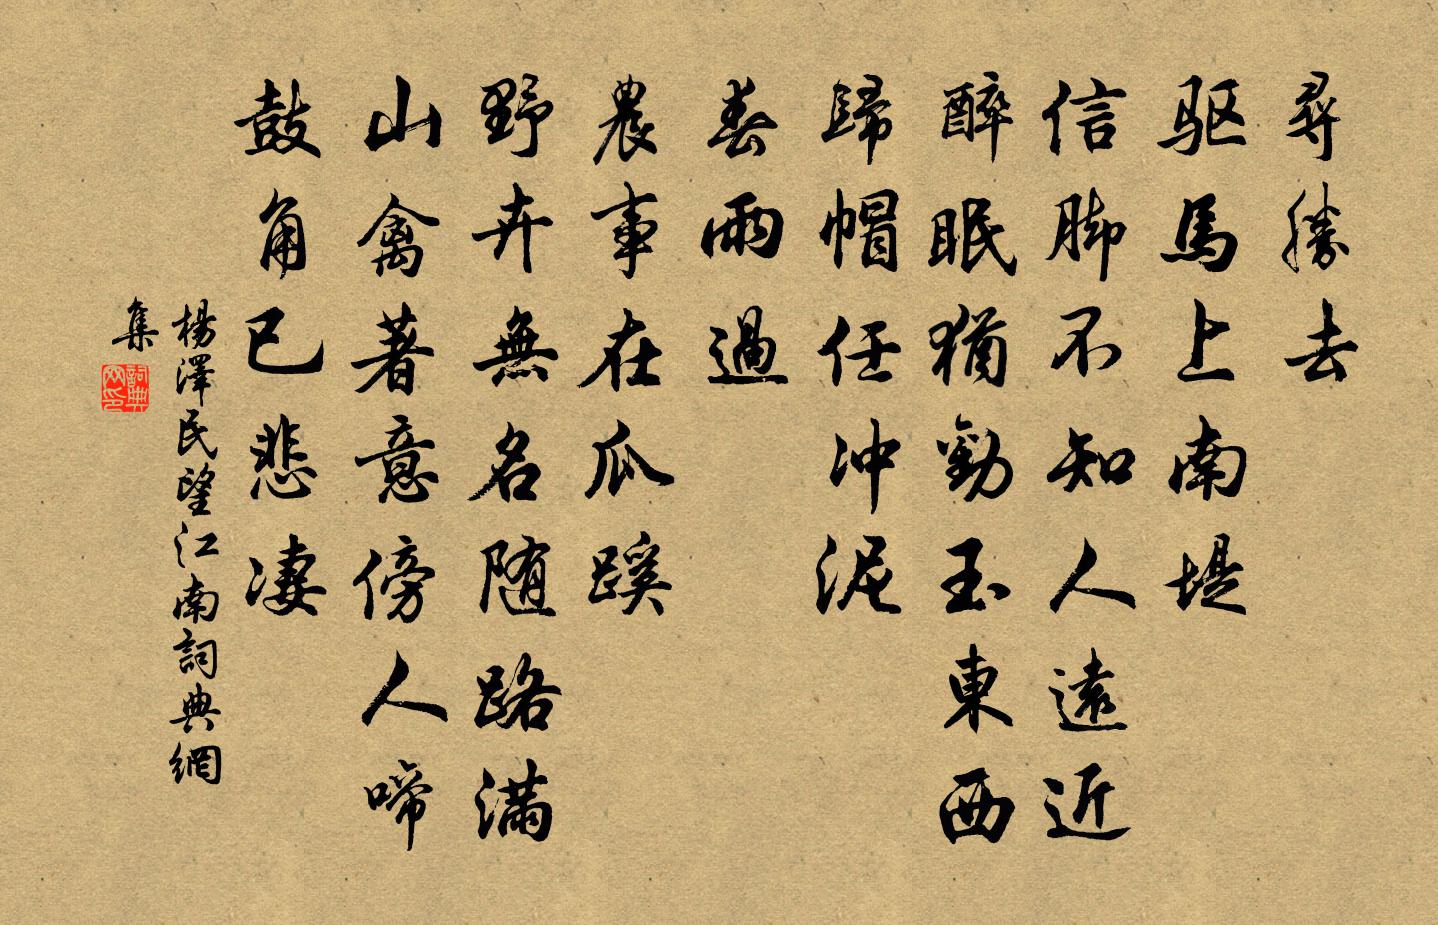 尋勝去
驱馬上南堤
信脚不知人遠近
醉眠猶勸玉東西
歸帽任冲泥
春雨過
農事在瓜蹊
野卉無名随路满
山禽著意傍人啼
鼓角已悲凄
楊澤民望江南詞典網
集
詞典網印